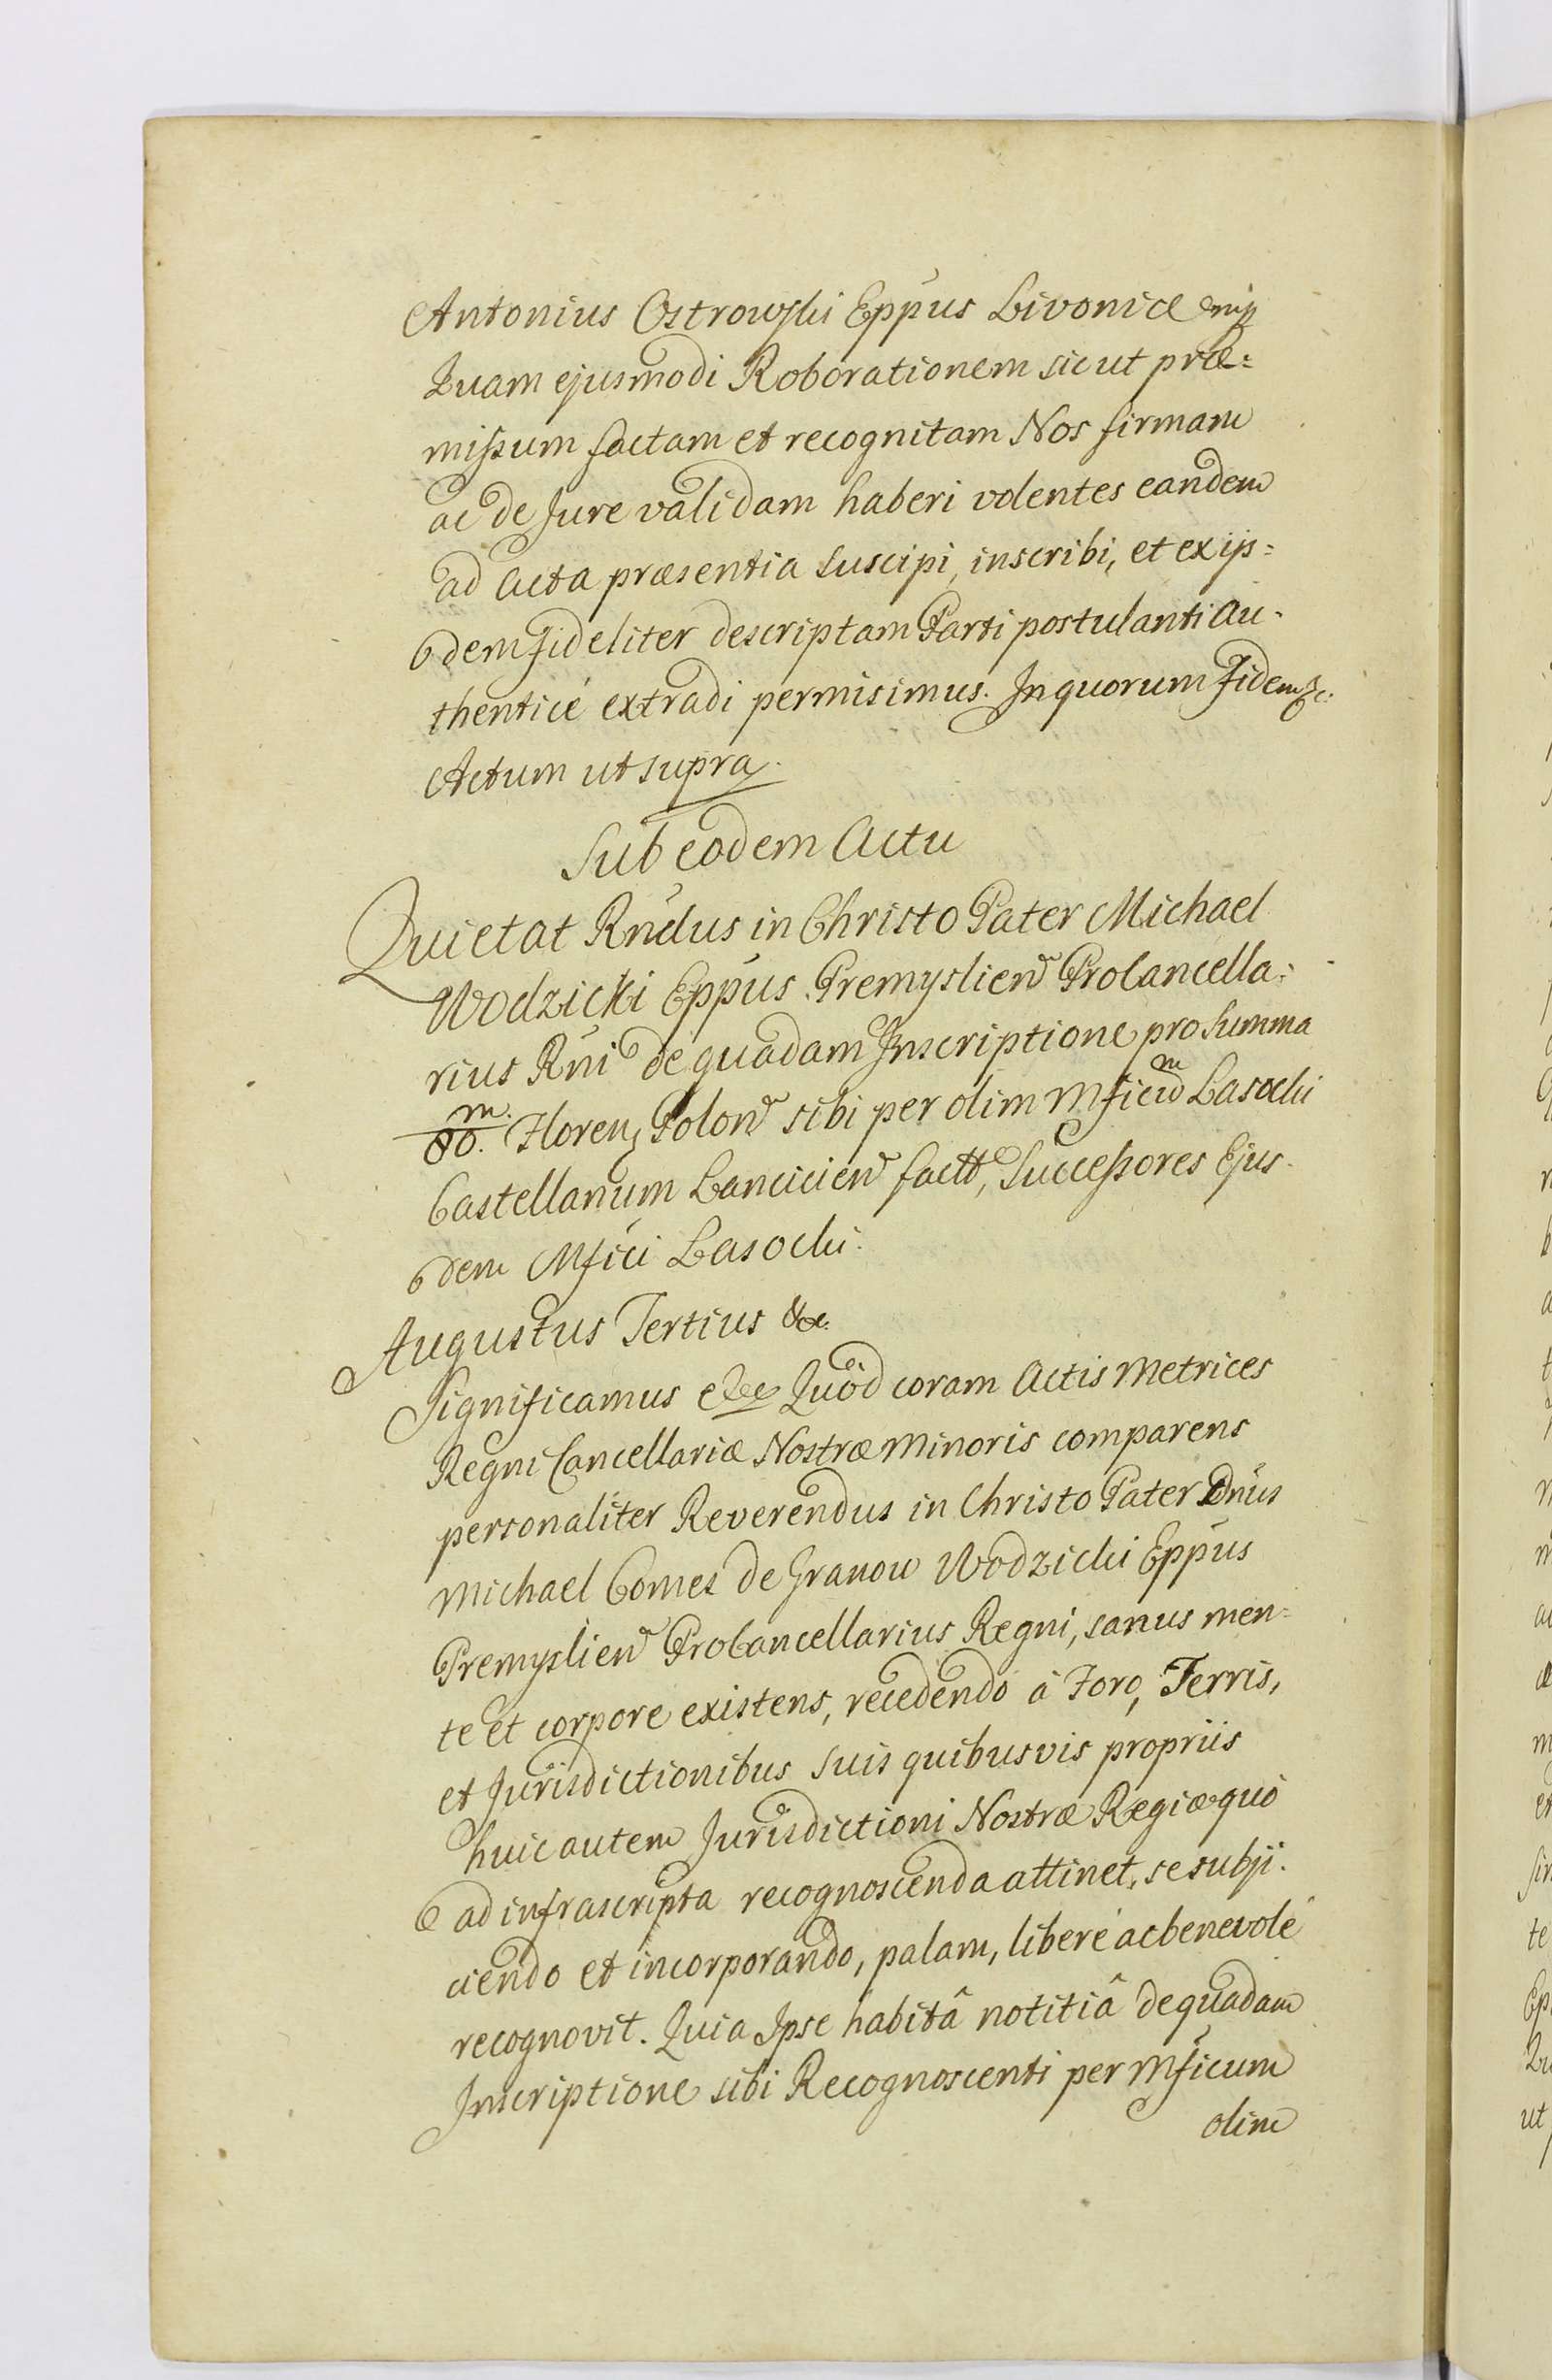 Antonius Ostrowski Eppus Livoniæ mp
Quam ejusmodi Roborationem sicut præ=
missum factam et recognitam Nos firmam
ac de Jure validam haberi volentes eandem
ad Acta præsentia suscipi, inscribi, et ex ijs=
dem fideliter descriptam Parti postulanti au=
thenticé extradi permisimus. In quorum Fidem &c.
Actum ut supra.
Sub eodem Actu
Quietat Rndus in Christo Pater Michael
Wodzicki Eppus Premyslien Procancella=
rius Rni de quadam Inscriptione pro summa
80.m Floren Polon sibi per olim Mficum Lasocki
Castellanum Lancicien factt, Successores Ejus=
dem Mfici Lasocki.
Augustus Tertius &c.
Significamus &c Quod coram Actis Metrices
Regni Cancellariæ Nostræ Minoris comparens
personaliter Reverendus in Christo Pater Dnus
Michael Comes de Granow Wodzicki Eppus
Premyslien Procancellarius Regni, sanus men=
te et corpore existens, recedendo á Foro, Terris,
et Jurisdictionibus suis quibusvis propriis
huic autem Jurisdictioni Nostræ Regiæ quó
ad infrascripta recognoscenda attinet, se subji=
ciendo et incorporando, palam, liberé ac benevolé
recognovit. Quia Ipse habitâ notitiâ de quadam
Inscriptione sibi Recognoscenti per Mficum
olim